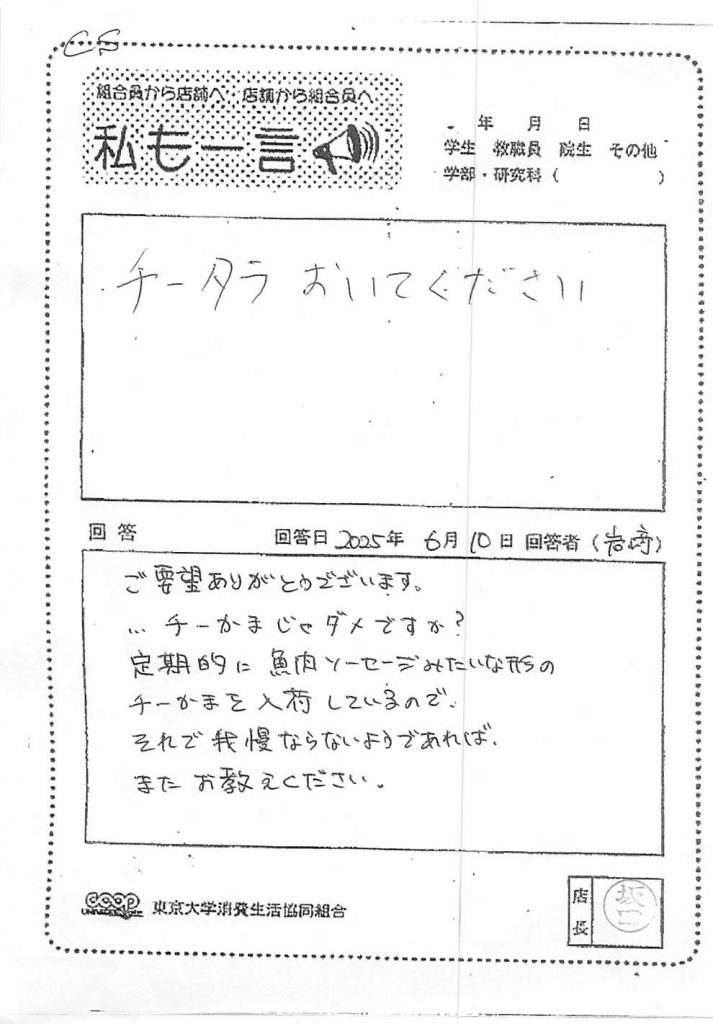 CS
組合員から店舗へ・店舗から組合員へ
私も一言
年 月 日
学生 教職員 院生 その他
学部・研究科 ( )
チータラ おいてください
回答 回答日 2025年 6月 10日 回答者 (岩崎)
ご要望ありがとうございます。
… チーかまじゃダメですか?
定期的に 魚肉ソーセージみたいな形の
チーかまを入荷しているので、
それで我慢ならないようであれば、
また お教えください。
coop 東京大学消費生活協同組合
店長
坂口